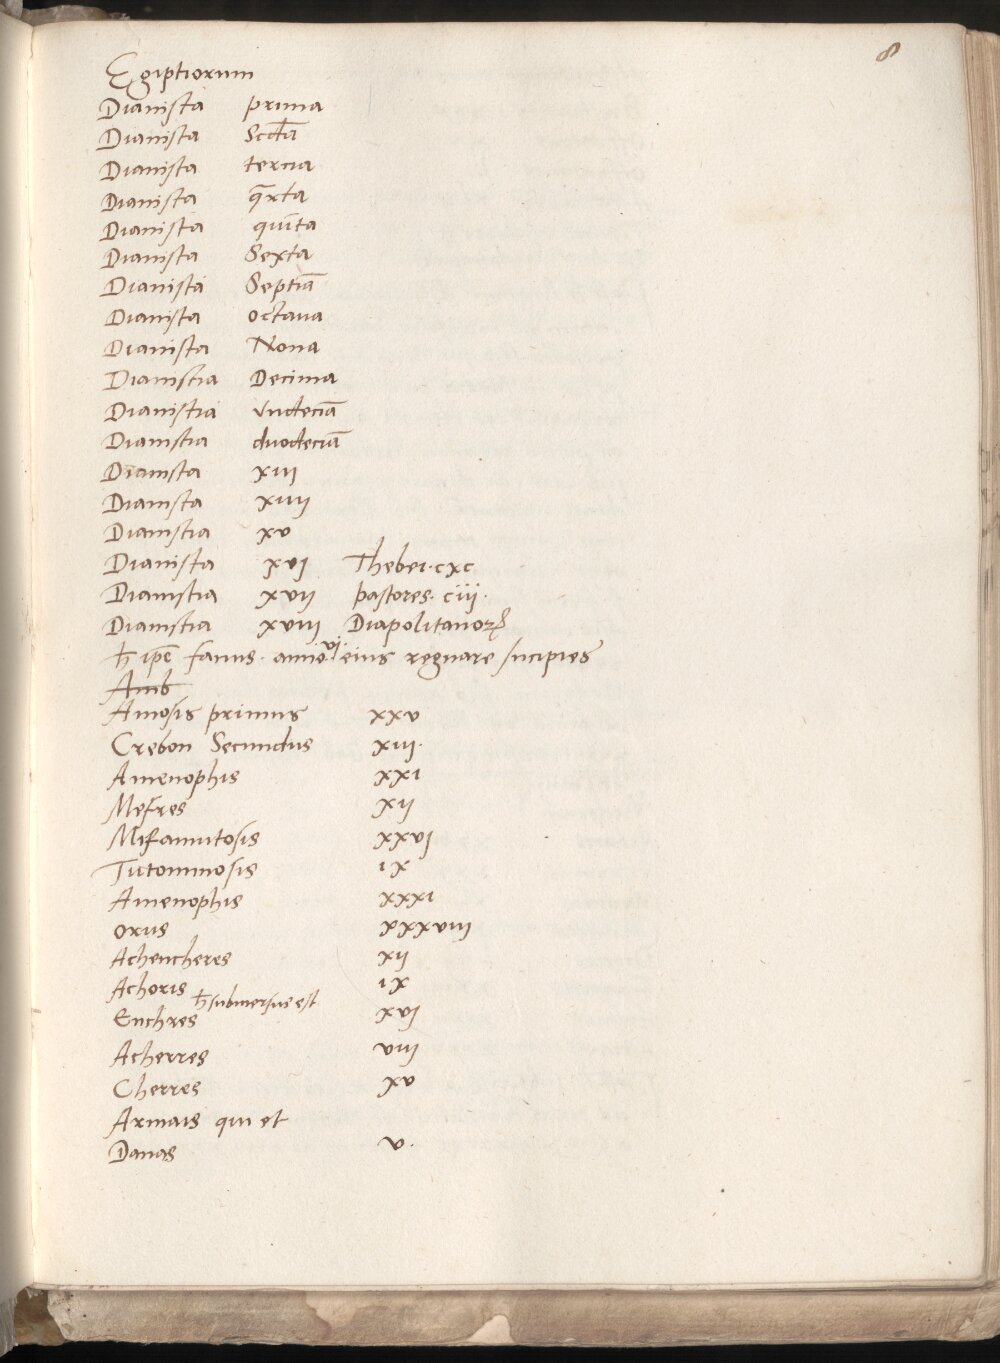 8
Egiptiorum
Dianista prima
Dianista Scda
Dianista tercia
Dianista qrta
Dianista quita
Dianista Sexta
Dianista Septia
Dianista octaua
Dianista Nona
Dianistia Decima
Dianistia vndecia
Dianistia duodecia
Dianista xiij
Dianista xiiij
Dianistia xv
Dianista xvj Thebei · cxc
Dianistia xvij pastores · ciij ·
Dianistia xviij Diapolitanorꝝ
ipe annio vi eius regnare Incipies
Amb
Amosis primus xxv
Crebon Secundus xiij ·
Amenophis xxi
Mefres xij
Mifamutosis xxvj
Tutomnosis ix
Amenophis xxxi
orus xxxviij
Achencheres xij
Achoris ix
submersus est
Enchres xvj
Acherres viij
Cherres xv
Armais qui et
Danas v ·